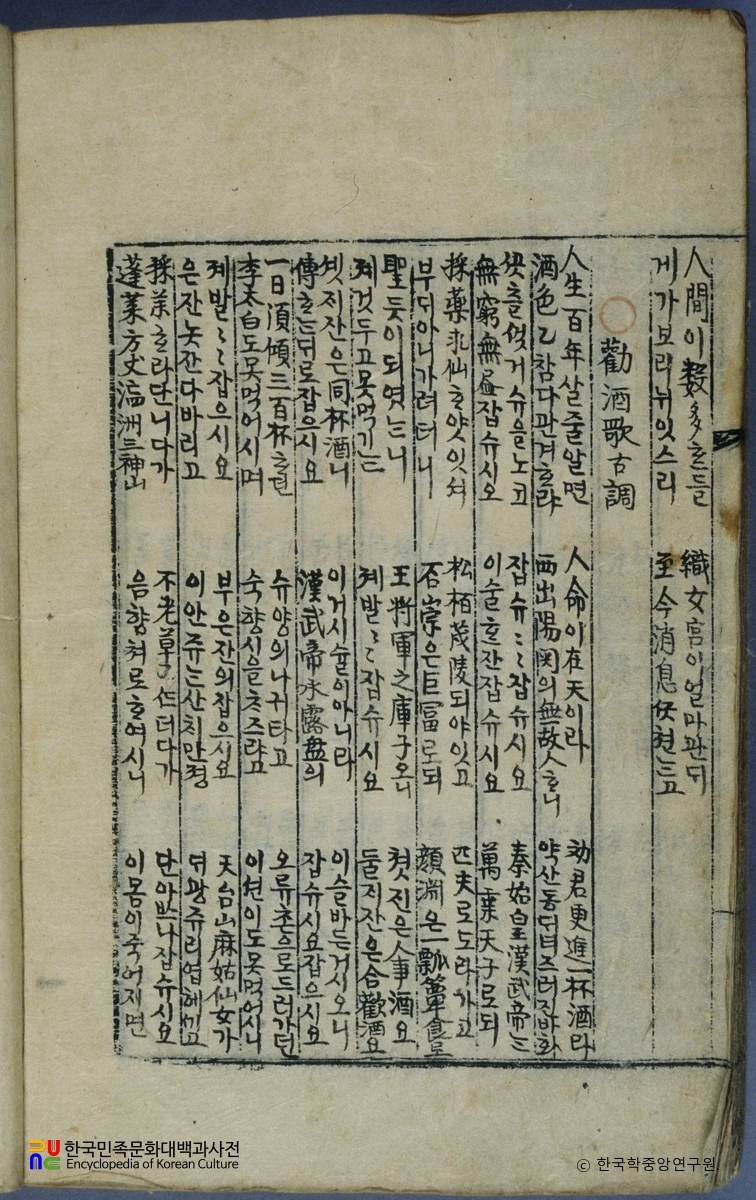 人間이數多ᄒᆞᆫ들 織女宮이얼마관ᄃᆡ
게가보리뉘잇스리 至今消息 쳔ᄂᆞᆫ고
勸酒歌古調
人生百年살줄알면 人命이在天이라 勸君更進一杯酒라
酒色乙참다관겨ᄒᆞ랴 西出陽関의無故人ᄒᆞ니 약산동ᄃᆡ
섯거슈을노코 잡슈〻〻잡슈시요 秦始皇漢武帝ᄂᆞᆫ
無窮無 잡슈시오 이술ᄒᆞᆫ잔잡슈시요 萬乘天子로되
採藥求仙ᄒᆞ얏잇셔 松栢茂陵되야잇고 匹夫로도라가고
부ᄃᆡ아니가려더니 石崇은巨冨로되 顔淵은一瓢簞食로
聖듯이되엿ᄂᆞ니 王將軍之庫子오니 쳣진은人事酒요
졔것두고못먹기ᄂᆞᆫ 졔발〻〻잡슈시요 둘ᄌᆡ잔은合歡酒요
솃ᄌᆡ잔은同杯酒니 이거시술이아니라 이슬바든거시오니
傳ᄒᆞᄂᆞᆫᄃᆡ로잡으시요 漢武帝承露盤의 잡슈시요잡으시요
一日湏傾三百杯ᄒᆞ던 슈양의나귀타고 오류촌으로드러가던
李太白도못먹어시며 숙향신을ᄎᆞᄌᆞ랴고 이션이도못먹어시니
졔발〻〻잡으시요 부은잔의잡으시요 天台山麻姑仙女가
은잔놋잔다바리고 이안쥬ᄂᆞᆫ산치만졍 ᄃᆡ광쥬리엽헤ᄭᅵ고
採茶ᄒᆞ라단니다가 不老草 더다가 단아ᄡᅳ나잡슈시요
蓬萊方丈瀛洲三神山 음향쳐로ᄒᆞ여시니 이몸이죽어지면
한국민족문화대백과사전
Encyclopedia of Korean Culture
ⓒ 한국학중앙연구원